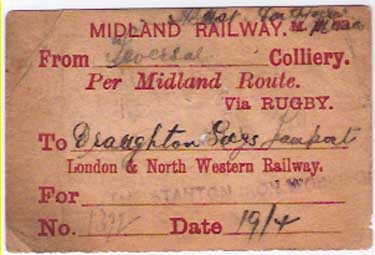 MIDLAND RAILWAY.
From Teversal Colliery.
Per Midland Route.
Via RUGBY.
To Draughton Sdgs Lamport
London & North Western Railway.
For STANTON IRON
No. Date 19/4